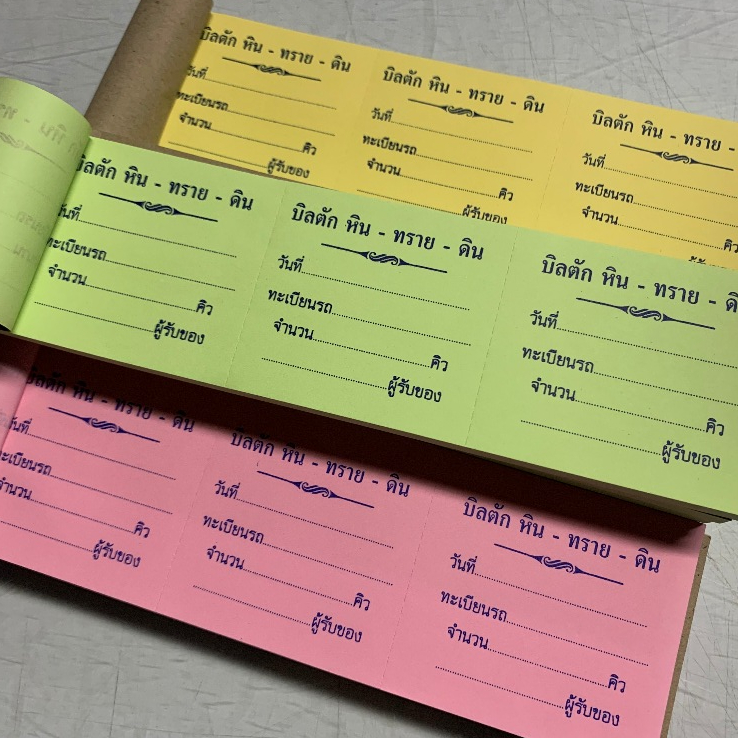 บิลตัก หิน - ทราย - ดิน
วันที่
ทะเบียนรถ
จำนวน คิว
ผู้รับของ
บิลตัก หิน - ทราย - ดิน
วันที่
ทะเบียนรถ
จำนวน คิว
ผู้รับของ
บิลตัก หิน - ทราย -
วันที่
ทะเบียนรถ
จำนวน คิว
บิลตัก หิน - ทราย - ดิน
วันที่
ทะเบียนรถ
จำนวน คิว
ผู้รับของ
บิลตัก หิน - ทราย - ดิน
วันที่
ทะเบียนรถ
จำนวน คิว
ผู้รับของ
บิลตัก หิน - ทราย - ดิ
วันที่
ทะเบียนรถ
จำนวน คิว
ผู้รับของ
บิลตัก หิน - ทราย - ดิน
วันที่
ทะเบียนรถ
จำนวน คิว
ผู้รับของ
บิลตัก หิน - ทราย - ดิน
วันที่
ทะเบียนรถ
จำนวน คิว
ผู้รับของ
บิลตัก หิน - ทราย - ดิน
วันที่
ทะเบียนรถ
จำนวน คิว
ผู้รับของ